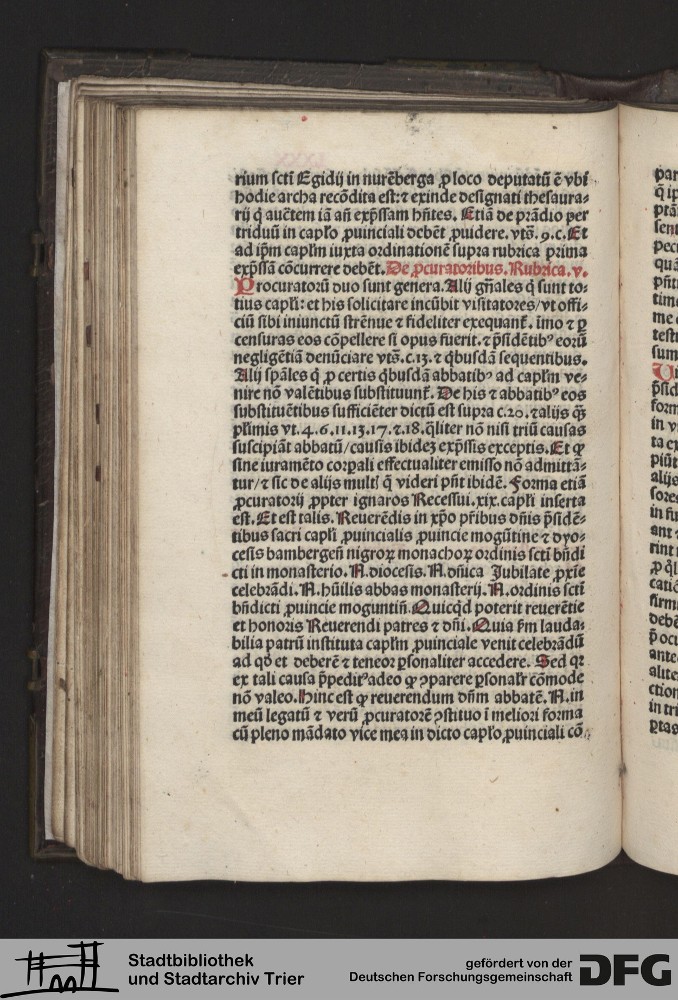 rium scti Egidij in nurēberga ꝓ loco deputatū ē vbi
hodie archa recōdita est: ⁊ exinde designati thesaura-
rij q̄ auētem iā añ exp̄ssam hñtes. Etiā de prādio per
triduū in capło ꝓuinciali debēt ꝓuidere. vts̄. 9. c. Et
ad ip̄m capłm iuxta ordinationē supra rubrica prima
exp̄ssā cōcurrere debēt. De ꝓcuratoribus. Rubrica. v.
Procuratorū duo sunt genera. Alij gñales q̄ sunt to-
tius capłi: et his solicitare incūbit visitatores/ vt offi-
ciū sibi iniunctū strēnue ⁊ fideliter exequanť. imo ⁊ ꝑ
censuras eos cōpellere si opus fuerit. ⁊ p̄sidētibꝰ eorū
negligētiā denūciare vts̄. c. 13. ⁊ q̄busdā sequentibus.
Alij sp̄ales q̄ ꝓ certis q̄busdā abbatibꝰ ad capłm ve-
nire nō valētibus substituunť. De his ⁊ abbatibꝰ eos
substituētibus sufficiēter dictū est supra c. 20. ⁊ alijs q̄ȝ
płimis vt. 4. 6. 11. 13. 17. ⁊. 18. q̄liter nō nisi triū causas
suscipiāt abbatū/ causis ibideȝ exp̄ssis exceptis. Et ꝙ
sine iuramēto corpali effectualiter emisso nō admittā-
tur/ ⁊ sic de alijs multꝭ q̄ videri pñt ibidē. Forma etiā
ꝓcuratorij ꝓpter ignaros Recessui. xix. capłi inserta
est. Et est talis. Reuerēdis in xp̄o pr̄ibus dñis p̄sidē-
tibus sacri capłi ꝓuincialis ꝓuincie mogūtine ⁊ dyo-
cesis bambergeñ nigroꝝ monachoꝝ ordinis scti bñdi
cti in monasterio. N. diocesis. N. dñica Jubilate ꝓxīe
celebrādi. N. hūilis abbas monasterij. N. ordinis scti
bñdicti ꝓuincie moguntiñ. Quicq̄d poterit reuerētie
et honoris Reuerendi patres ⁊ dñi. Quia p̄m lauda-
bilia patrū instituta capłm ꝓuinciale venit celebrādū
ad qď et deberē ⁊ teneor ꝑsonaliter accedere. Sed qꝛ
ex tali causa p̄peditꝰ adeo ꝙ ꝯparere ꝑsonałr cōmode
nō valeo. Hinc est ꝙ reuerendum dñm abbatē. N. in
meū legatū ⁊ verū ꝓcuratorē ꝯstituo ī meliori forma
cū pleno mādato vice mea in dicto capło ꝓuinciali cō
Stadtbibliothek
und Stadtarchiv Trier
gefördert von der
Deutschen Forschungsgemeinschaft
DFG